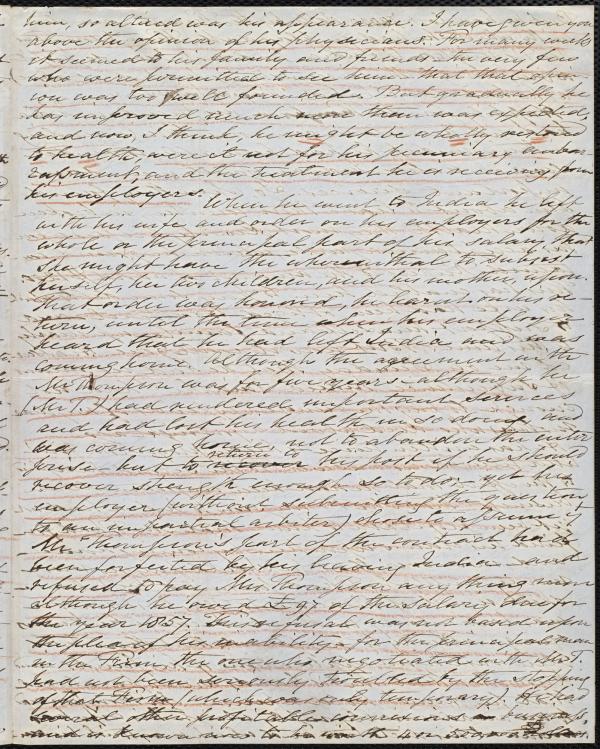 him, so altered was his appearance. I have given you
above the opinion of his Physicians. For many weeks
it seemed to his family and friends—the very few
who were permitted to see him—that that opin-
ion was too well founded. But gradually he
has improved much more than was expected,
and now, I think, he might be wholly restored
to health, were it not for his pecuniary embar-
rassment, and the treatment he is receiving from
his employers.
When he went to India he left
with his wife and order on his employers for the
whole or the principal part of his salary, that
she might have the wherewithal to subsist
herself, her two children, and his mother, upon.
That order was honored, he learnt on his re-
turn, until the time when his employers
heard that he had left India and was
coming home. Although the agreement with
Mr Thompson was for five years—although he
(Mr T.) had rendered important services
and had lost his health in so doing and
was coming home, not to abandon the enter
prise—but to return to his post if he should
recover strength enough so to do—yet his
employer (without submitting the question
to an impartial arbiter) chose to assume t
Mr. Thompson's part of the contract had
been forfeited by his leaving India—and
refused to pay Mrs. Thompson any thing more
although he owed £97 of the Salary due for
the year 1857. This refusal was not based upon
the plea of inability—for the principal man
in the Firm, the one who negotiated with Mr T.
had not been seriously troubled by the stopping
of that Firm (which was only temporary). He had
several other profitable
and is known to be worth